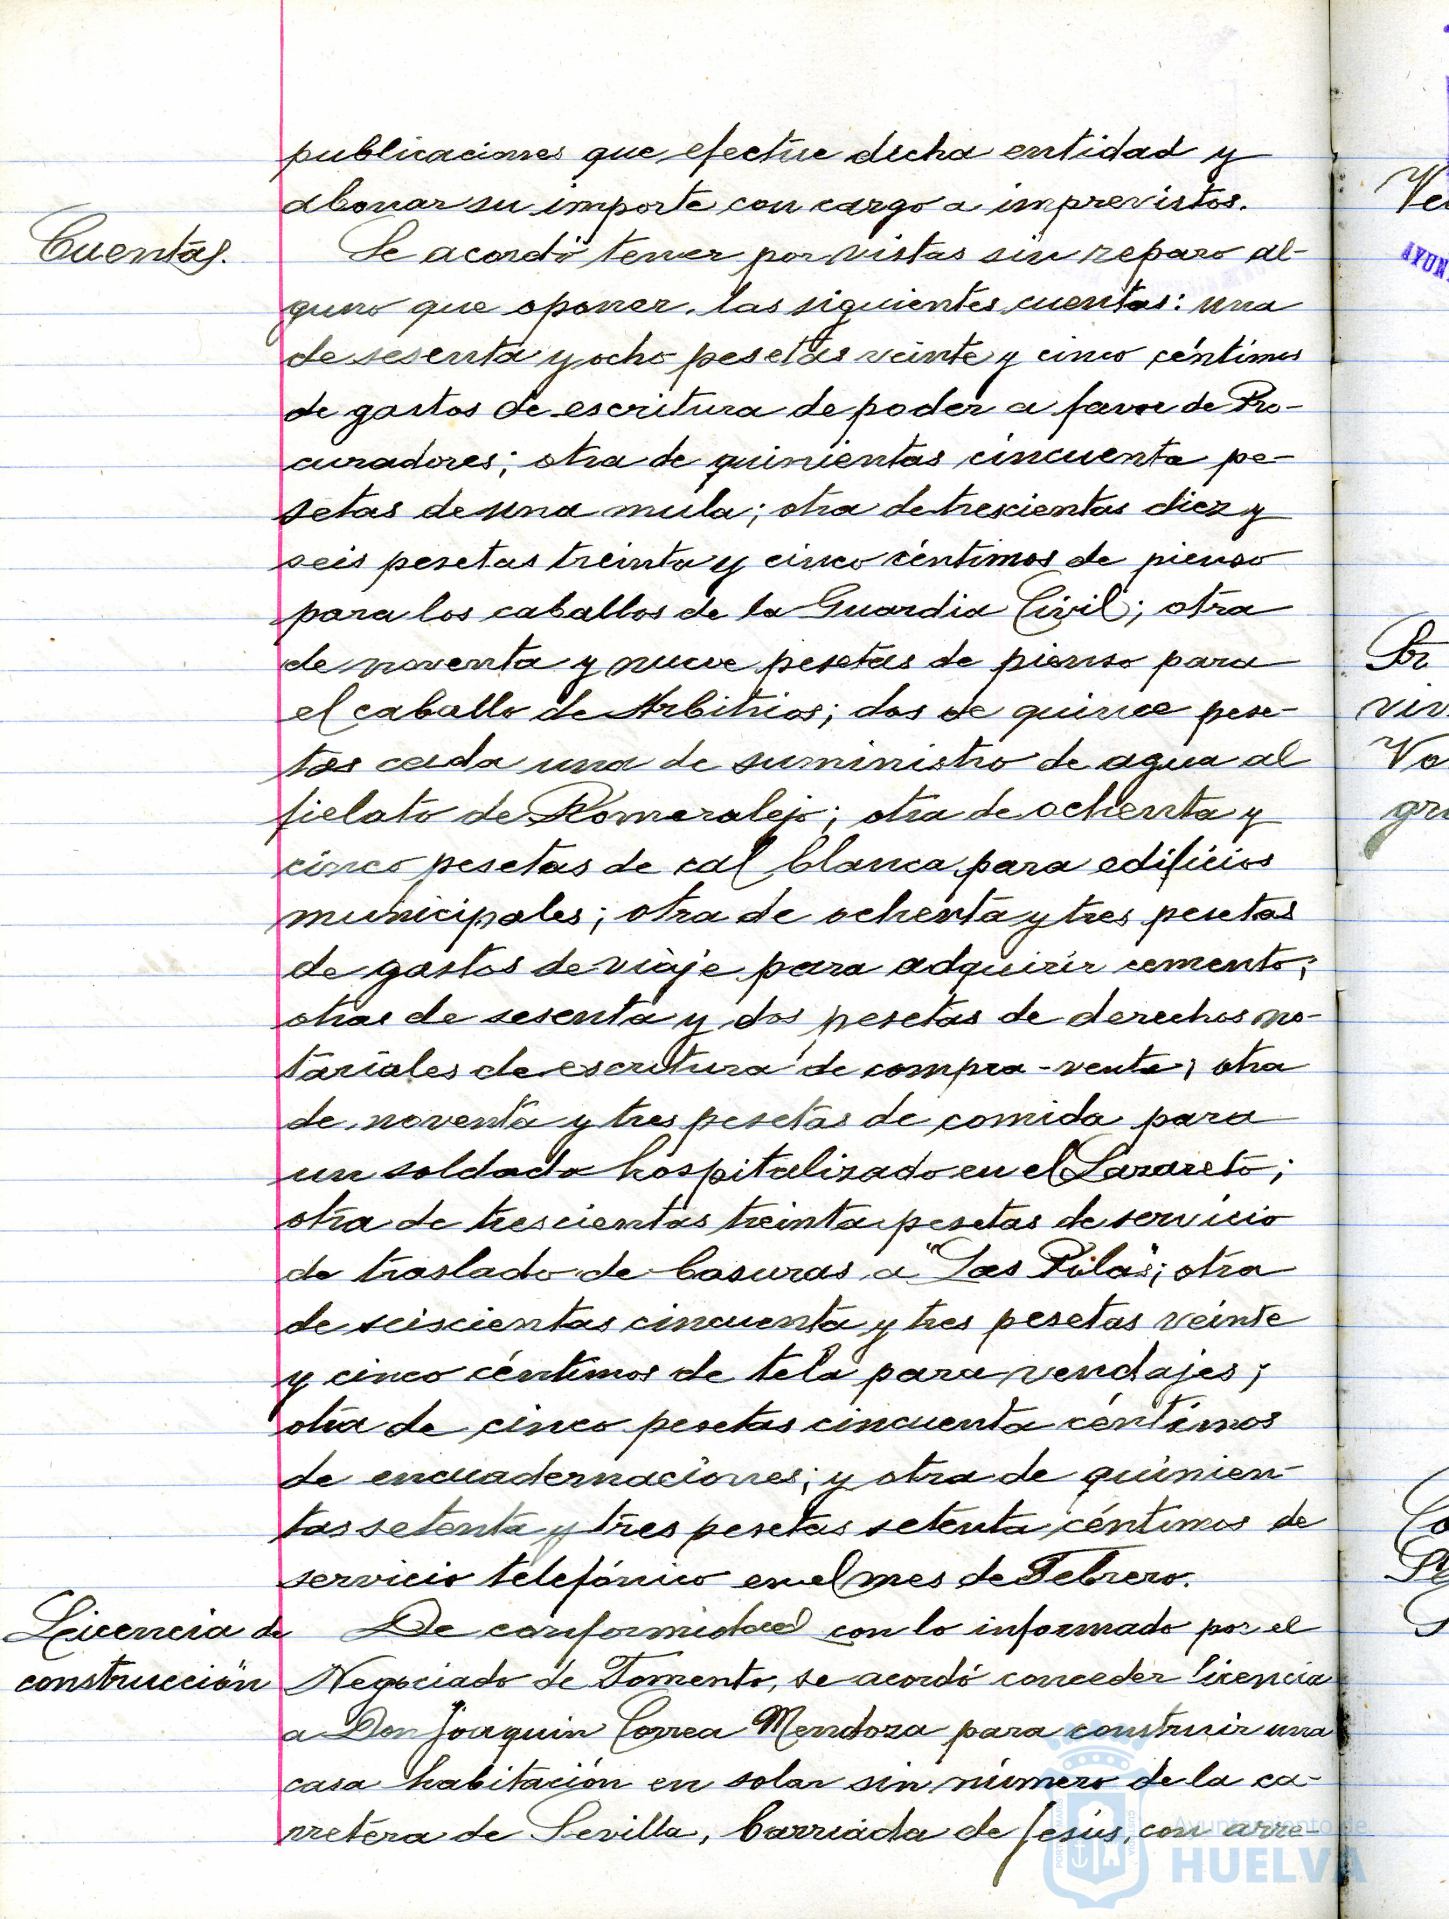 publicaciones que efectue dicha entidad y
abonar su importe con cargo a imprevistos.
Cuentas.
Se acordó tener por vistas sin reparo al-
guno que oponer, las siguientes cuentas: una
de sesenta y ocho pesetas veinte y cinco céntimos
de gastos de escritura de poder a favor de Pro-
curadores; otra de quinientas cincuenta pe-
setas de una mula; otra de trescientas diez y
seis pesetas treinta y cinco céntimos de pienso
para los caballos de la Guardia Civil; otra
de noventa y nueve pesetas de pienso para
el caballo de Arbitrios; dos de quince pese-
tas cada una de suministro de agua al
fielato de Romeralejo; otra de ochenta y
cinco pesetas de cal blanca para edificios
municipales; otra de ochenta y tres pesetas
de gastos de viaje para adquirir cemento;
otras de sesenta y dos pesetas de derechos no-
tariales de escritura de compra-venta; otra
de noventa y tres pesetas de comida para
un soldado hospitalizado en el Lazareto;
otra de trescientas treinta pesetas de servicio
de traslado de basuras a "Las Pilas"; otra
de seiscientas cincuenta y tres pesetas veinte
y cinco céntimos de tela para vendajes;
otra de cinco pesetas cincuenta céntimos
de encuadernaciones; y otra de quinien-
tas setenta y tres pesetas setenta céntimos de
servicio telefónico en el mes de Febrero.
Licencia de
construcción
De conformidad con lo informado por el
Negociado de Fomento, se acordó conceder licencia
a Don Joaquin Correa Mendoza para construir una
casa habitación en solar sin número de la ca-
rretera de Sevilla, barriada de Jesús, con arre-
Ayuntamiento de
HUELVA